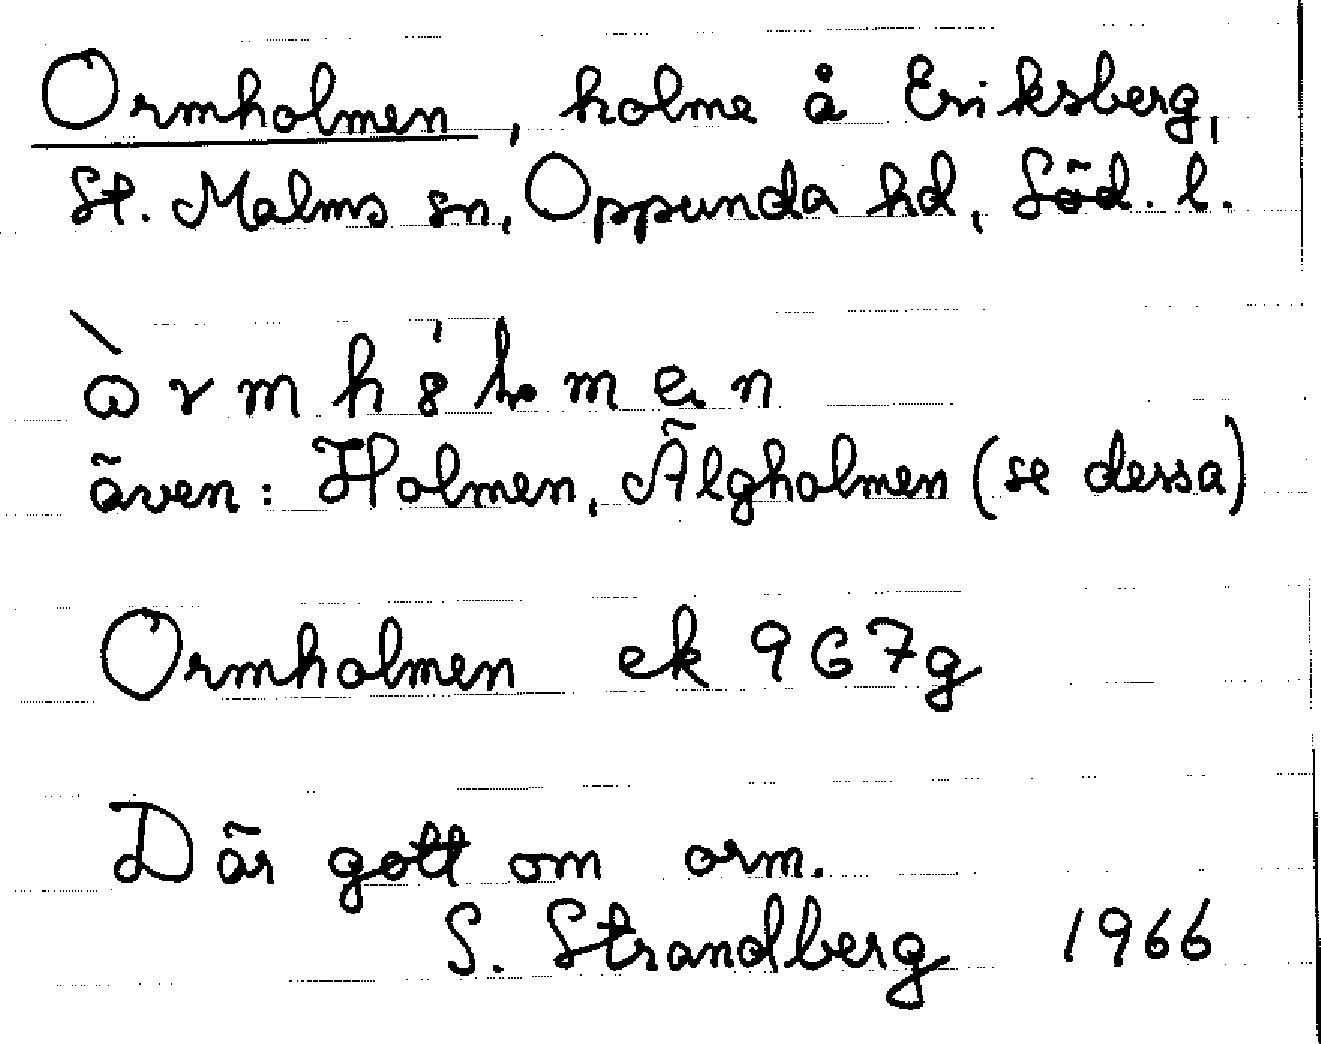 Ormholmen, holme å Eriksberg,
St. Malms sn, Oppunda hd, Söd. l.
även: Holmen, Älgholmen (se dessa)
Ormholmen ek 967g
Där gott om orm.
S. Strandberg 1966